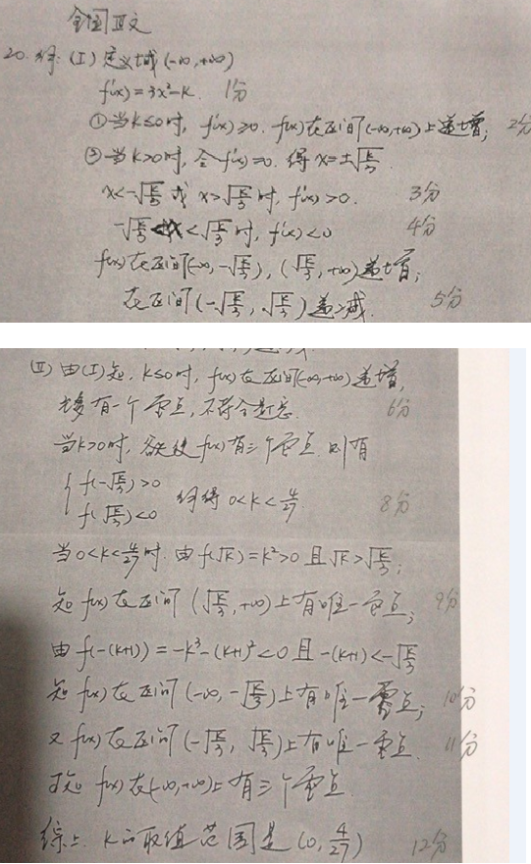 全国Ⅲ文
20. 解: (I) 定义域 (-∞,+∞)
f'(x) = 3x²-k. 1分
①当k≤0时, f'(x)≥0. f(x)在区间(-∞,+∞)上递增; 2分
②当k>0时, 令f'(x)=0. 得 x=±√(k/3)
x<-√(k/3) 或 x>√(k/3) 时, f'(x)>0. 3分
-√(k/3)<x<√(k/3) 时, f'(x)<0 4分
f(x)在区间(-∞, -√(k/3)), (√(k/3), +∞)递增;
在区间(-√(k/3), √(k/3))递减. 5分
(Ⅱ) 由(I)知, k≤0时, f(x)在区间(-∞,+∞)递增,
有一个零点, 不符合题意. 6分
当k>0时, 若使f(x)有三个零点. 则有
{ f(-√(k/3))>0
f(√(k/3))<0 解得 0<k<4/27 8分
当0<k<4/27时. 由f(√k)=k²>0 且 √k>√(k/3);
知f(x)在区间(√(k/3),+∞)上有唯一零点; 9分
由f(-(k+1)) = -k³-(k+1)²<0 且 -(k+1)<-√(k/3)
知f(x)在区间(-∞, -√(k/3))上有唯一零点; 10分
又f(x)在区间(-√(k/3), √(k/3))上有唯一零点. 11分
知 f(x)在(-∞,+∞)上有三个零点.
综上. k的取值范围是(0, 4/27) 12分